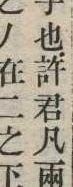 子也許君凡兩
之ノ在二之下